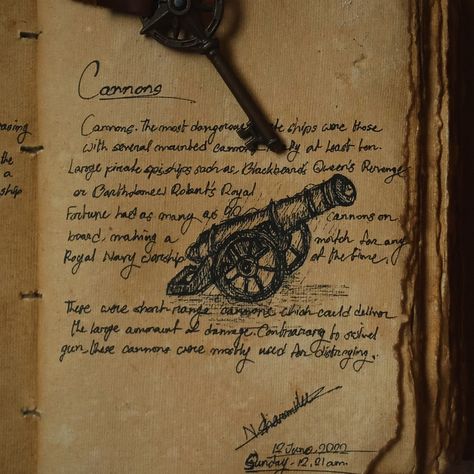 Cannons
Cannons. The most dangerous ships were those
with several mounted cannons at least ten.
Large pirate ships such as Blackbeard's Queen's Revenge
or Bartholomew Robert's Royal
Fortune had as many as cannons on
board, making a match for any
Royal Navy warship at the time.
These were short range cannons which could deliver
the large amount of damage. Contrarary to swivel
gun these cannons were mostly used for
12 June, 2022
Sunday - 12.21am
the
a
ship